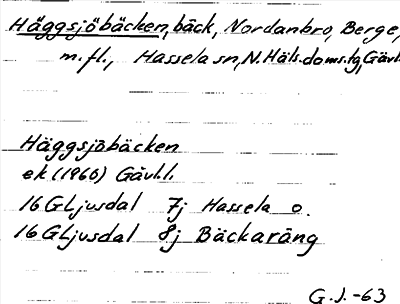 Häggsjöbäcken, bäck, Nordanbro, Berge,
m.fl., Hassela sn, N. Häls. doms.tg, Gävl.
Häggsjöbäcken
ek (1960) Gävl.l.
16G Ljusdal 7j Hassela o.
16G Ljusdal 8j Bäckaräng
G.J.-63